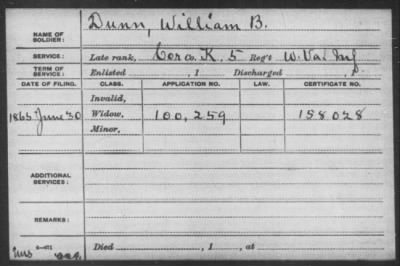 NAME OF SOLDIER: Dunn, William B.
SERVICE: Late rank, Cor Co. K, 5 Reg't W. Va. Inf
TERM OF SERVICE: Enlisted , 1 Discharged , 1
DATE OF FILING. CLASS. APPLICATION NO. LAW. CERTIFICATE NO.
Invalid,
1865 June 30 Widow, 100,259 158028
Minor,
ADDITIONAL SERVICES:
REMARKS:
Died , 1 , at